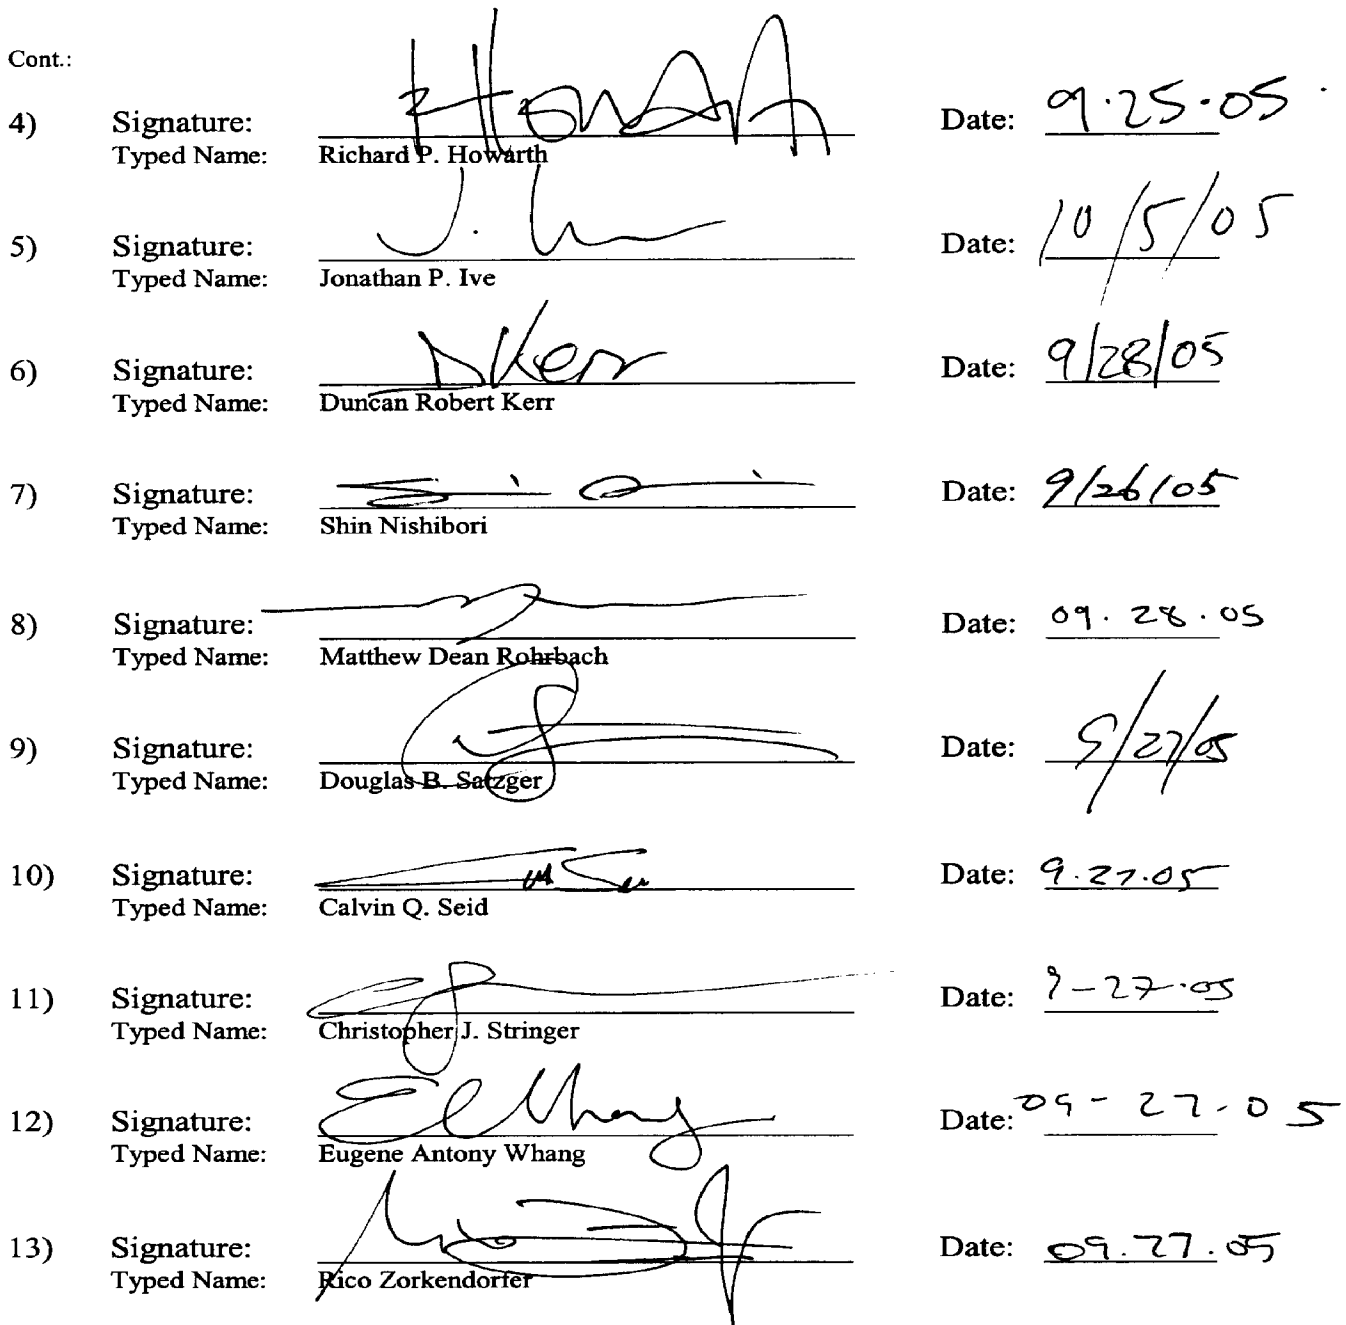 Cont.:
4) Signature: R Howarth Date: 9.25.05
Typed Name: Richard P. Howarth
5) Signature: J. Date: 10/5/05
Typed Name: Jonathan P. Ive
6) Signature: DKerr Date: 9/28/05
Typed Name: Duncan Robert Kerr
7) Signature: Date: 9/26/05
Typed Name: Shin Nishibori
8) Signature: Date: 09.28.05
Typed Name: Matthew Dean Rohrbach
9) Signature: Date: 9/27/05
Typed Name: Douglas B. Satzger
10) Signature: Date: 9.27.05
Typed Name: Calvin Q. Seid
11) Signature: Date: 9-27.05
Typed Name: Christopher J. Stringer
12) Signature: E Whang Date: 09-27-05
Typed Name: Eugene Antony Whang
13) Signature: Date: 09.27.05
Typed Name: Rico Zorkendorfer